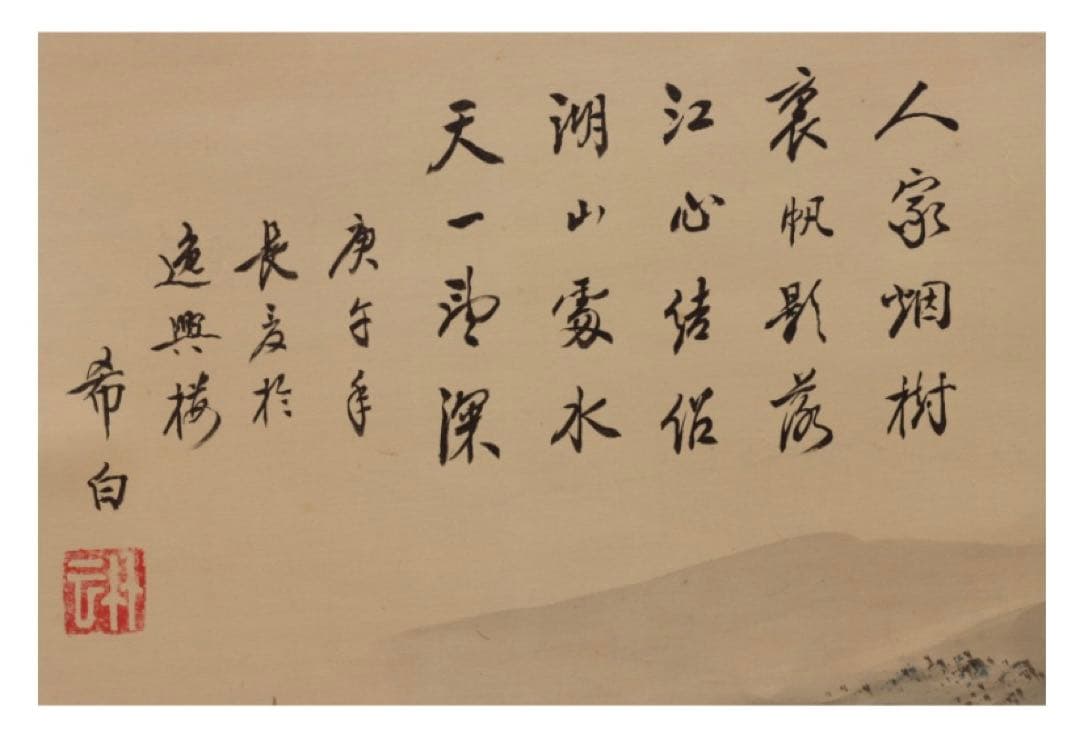 人家烟樹
裏帆影落
江心結侶
湖山處水
天一望深
庚午年
長夏於
逸興樓
希白